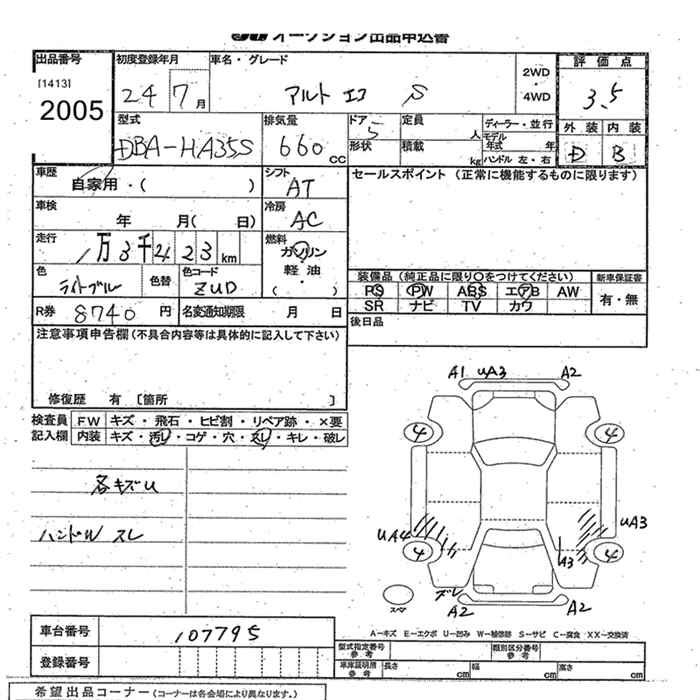 オークション出品申込書
出品番号
[1413]
2005
初度登録年月
24 7月
車名・グレード
アルト エコ S
2WD
・
4WD
評価点
3.5
外装 内装
D B
型式
DBA-HA35S
排気量
660 CC
ドア 5
形状
定員 人
積載 kg
ディーラー・並行
モデル年式 年
ハンドル 左・右
車歴
自家用・( )
シフト
AT
セールスポイント (正常に機能するものに限ります)
車検
年 月( 日)
冷房
AC
走行
1万3千423km
燃料
ガソリン
軽油
( ・ )
色
ライトブル
色替
色コード
ZUD
装備品 (純正品に限り○をつけてください) 新車保証書
PS PW ABS エアB AW 有・無
SR ナビ TV カワ
R券 8740 円
名変通知期限 月 日
後日品
注意事項申告欄(不具合内容等は具体的に記入して下さい)
修復歴 有 [箇所 ]
検査員記入欄
FW キズ・飛石・ヒビ割・リペア跡・×要
内装 キズ・汚し・コゲ・穴・スレ・キレ・破レ
各キズU
ハンドルW スレ
A1 UA3 A2
4 4
UA4 UA3
4 A3 4
ズレ
A2 A2
スペア
A-キズ E-エクボ U-凹み W-補修跡 S-サビ C-腐食 XX-交換済
車台番号 107795
登録番号
型式指定番号 参考
類別区分番号 参考
車庫証明所 参考 長さ cm 幅 cm 高さ cm
希望出品コーナー(コーナーは各会場により異なります。)